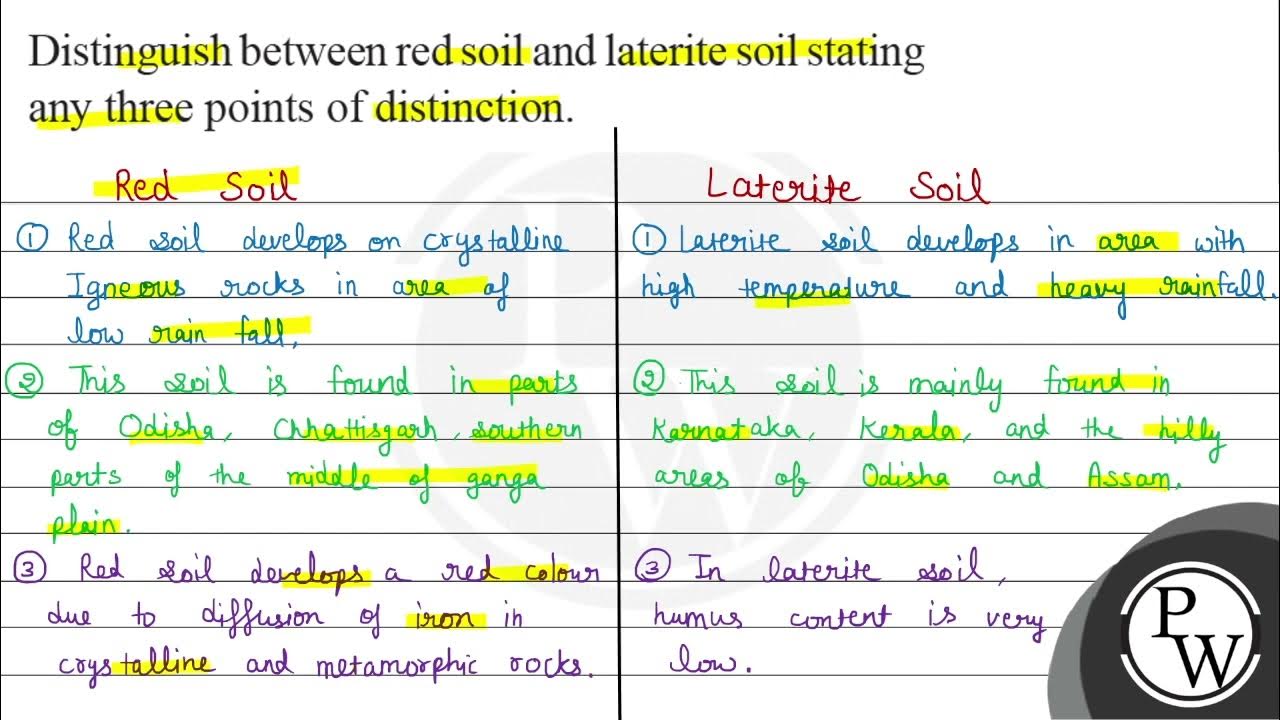 Distinguish between red soil and laterite soil stating
any three points of distinction.
Red Soil
① Red soil develops on crystalline
Igneous rocks in area of
low rain fall.
② This soil is found in parts
of Odisha, Chhattisgarh, southern
parts of the middle of ganga
plain.
③ Red soil develops a red colour
due to diffusion of iron in
crystalline and metamorphic rocks.
Laterite Soil
① Laterite soil develops in area with
high temperature and heavy rainfall.
② This soil is mainly found in
Karnataka, Kerala, and the hilly
areas of Odisha and Assam.
③ In laterite soil,
humus content is very
low.
P
W